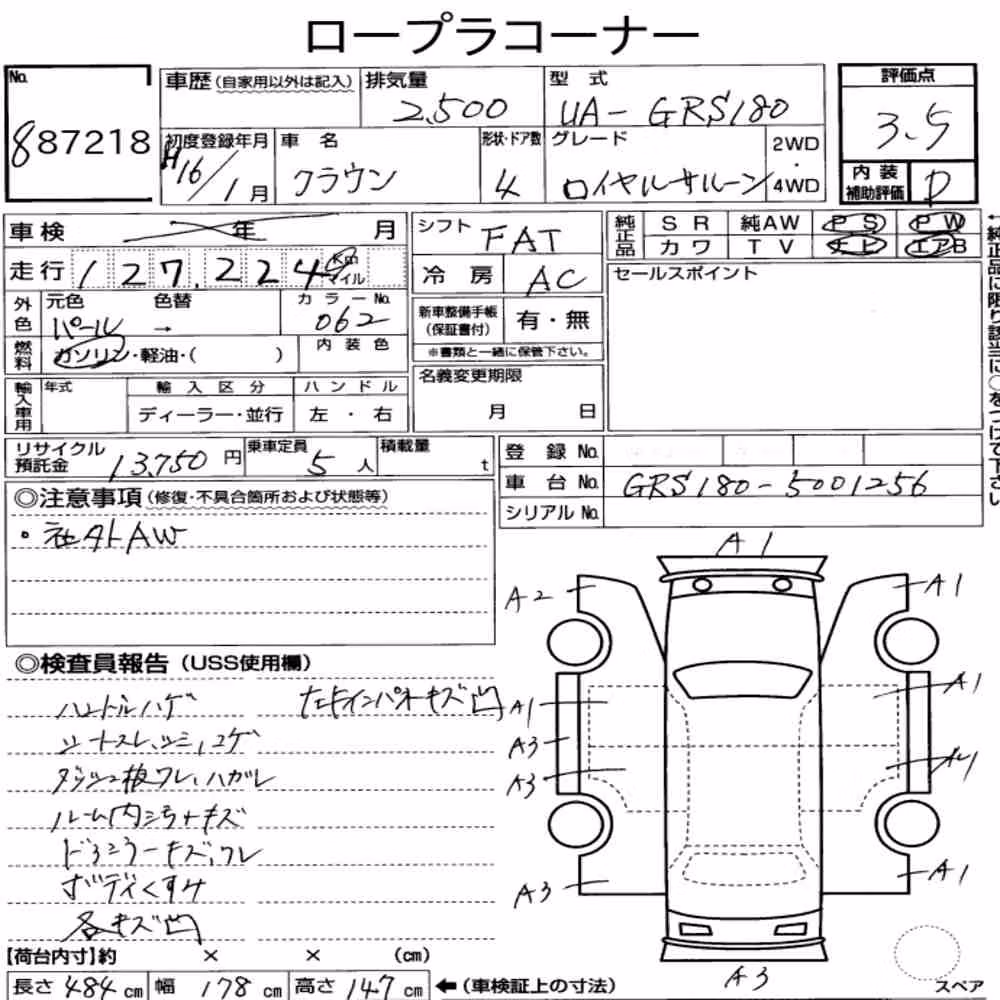 ロープラコーナー
No. 887218
車歴(自家用以外は記入) 排気量 2,500 型式 UA-GRS180
評価点 3.5
初度登録年月 H16/1月 車名 クラウン 形状・ドア数 4 グレード ロイヤルサルーン 2WD・4WD
内装補助評価 D
車検 年 月
シフト FAT
純正品 SR 純AW PS PW
カワ TV ナビ エアB
走行 127,224 Km マイル
冷房 AC
セールスポイント
←純正品に限り該当に○をつけて下さい
外色 元色 パール 色替 → カラーNo. 062
新車整備手帳(保証書付) 有・無
※書類と一緒に保管下さい。
燃料 ガソリン・軽油・( ) 内装色
輸入車用 年式 輸入区分 ディーラー・並行 ハンドル 左・右
名義変更期限 月 日
リサイクル預託金 13,750円 乗車定員 5人 積載量 t
登録No.
車台No. GRS180-5001256
シリアルNo.
◎注意事項(修復・不具合箇所および状態等)
・社外AW
◎検査員報告(USS使用欄)
ハンドルハゲ
左キインパオキズ凹
シートスレ、シミ、コゲ
ダッシュ板ワレ、ハガレ
ルーム内シミキズ
ドアミラーキズ、ワレ
ボディくすみ
各キズ凹
A1
A2 A1
A1 A1
A3
A3 A1
A3 A1
A3
スペア
【荷台内寸】約 × × (cm)
長さ 484 cm 幅 178 cm 高さ 147 cm ←(車検証上の寸法)